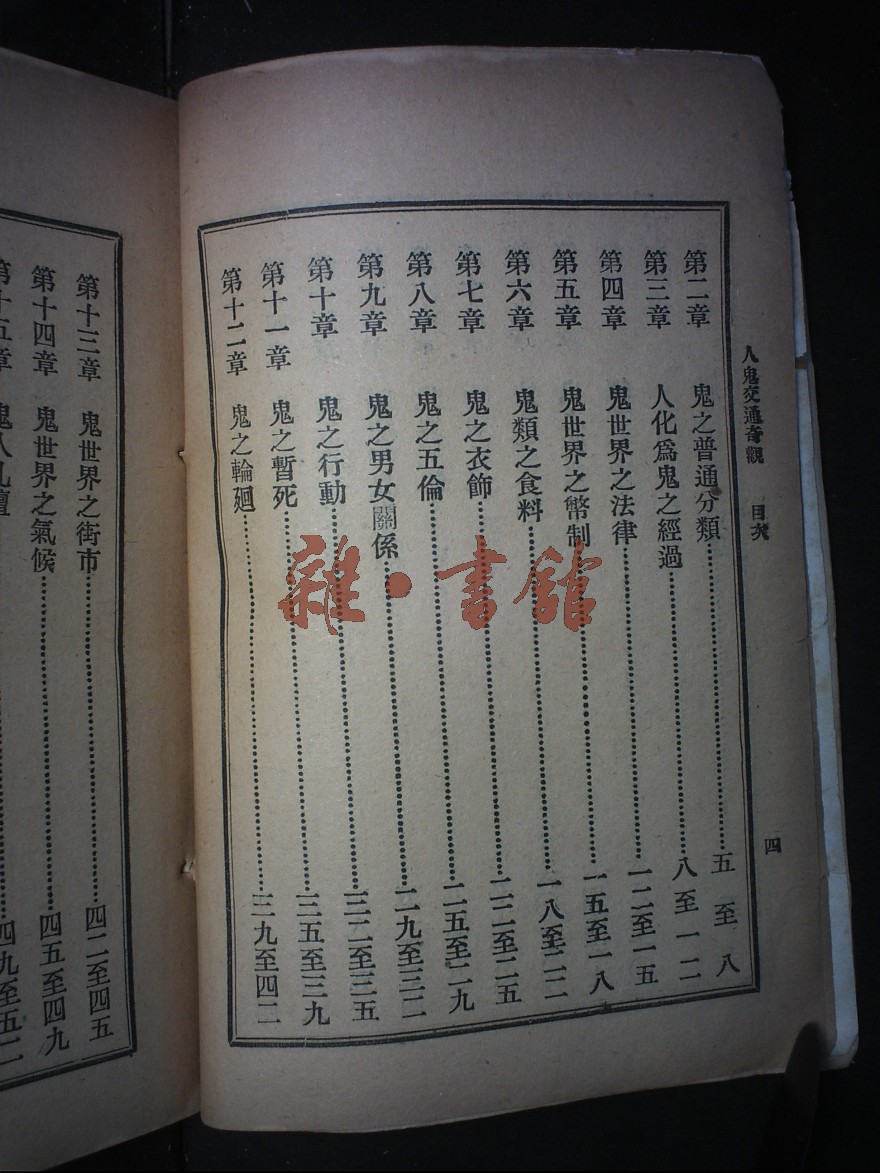 人鬼交通奇觀 目次 四
第二章 鬼之普通分類 五至八
第三章 人化爲鬼之經過 八至一二
第四章 鬼世界之法律 一二至一五
第五章 鬼世界之幣制 一五至一八
第六章 鬼類之食料 一八至二二
第七章 鬼之衣飾 二二至二五
第八章 鬼之五倫 二五至二九
第九章 鬼之男女關係 二九至三二
第十章 鬼之行動 三二至三五
第十一章 鬼之暫死 三五至三九
第十二章 鬼之輪廻 三九至四二
第十三章 鬼世界之街市 四二至四五
第十四章 鬼世界之氣候 四五至四九
第十五章 四九至五二
雜·書館